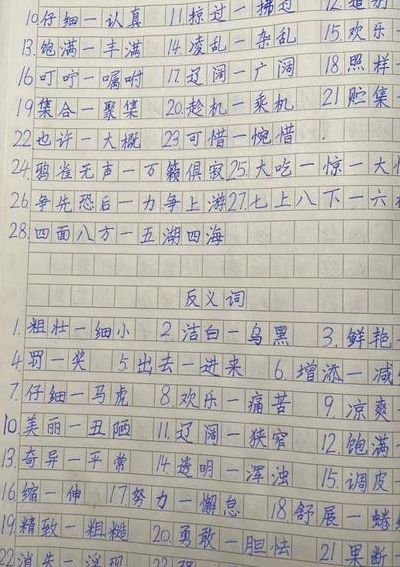 10仔细一认真 11掠过一拂过 12.道别
13.饱满一丰满 14.凌乱一杂乱 15.欢乐一
16叮咛一嘱咐 17.辽阔一广阔 18.照样一
19集合一聚集 20.趁机一乘机 21贮集一
22也许一大概 23可惜一惋惜
24.鸦雀无声一万籁俱寂25.大吃一惊一大
26争先恐后一力争上游27.七上八下一六
28.四面八方一五湖四海
反义词
1.粗壮一细小 2.洁白一乌黑 3.鲜艳一
4罚一奖 5.出去一进来 6.增添一减
7.仔细一马虎 8.欢乐一痛苦 9.凉爽一
10美丽一丑陋 11.辽阔一狭窄 12.饱满一
13.奇异一平常 14透明一浑浊 15.调皮一
16缩一伸 17努力一懈怠 18.舒展一蜷
19.精致一粗糙 20.勇敢一胆怯 21果断一
22消失一浮现 23.